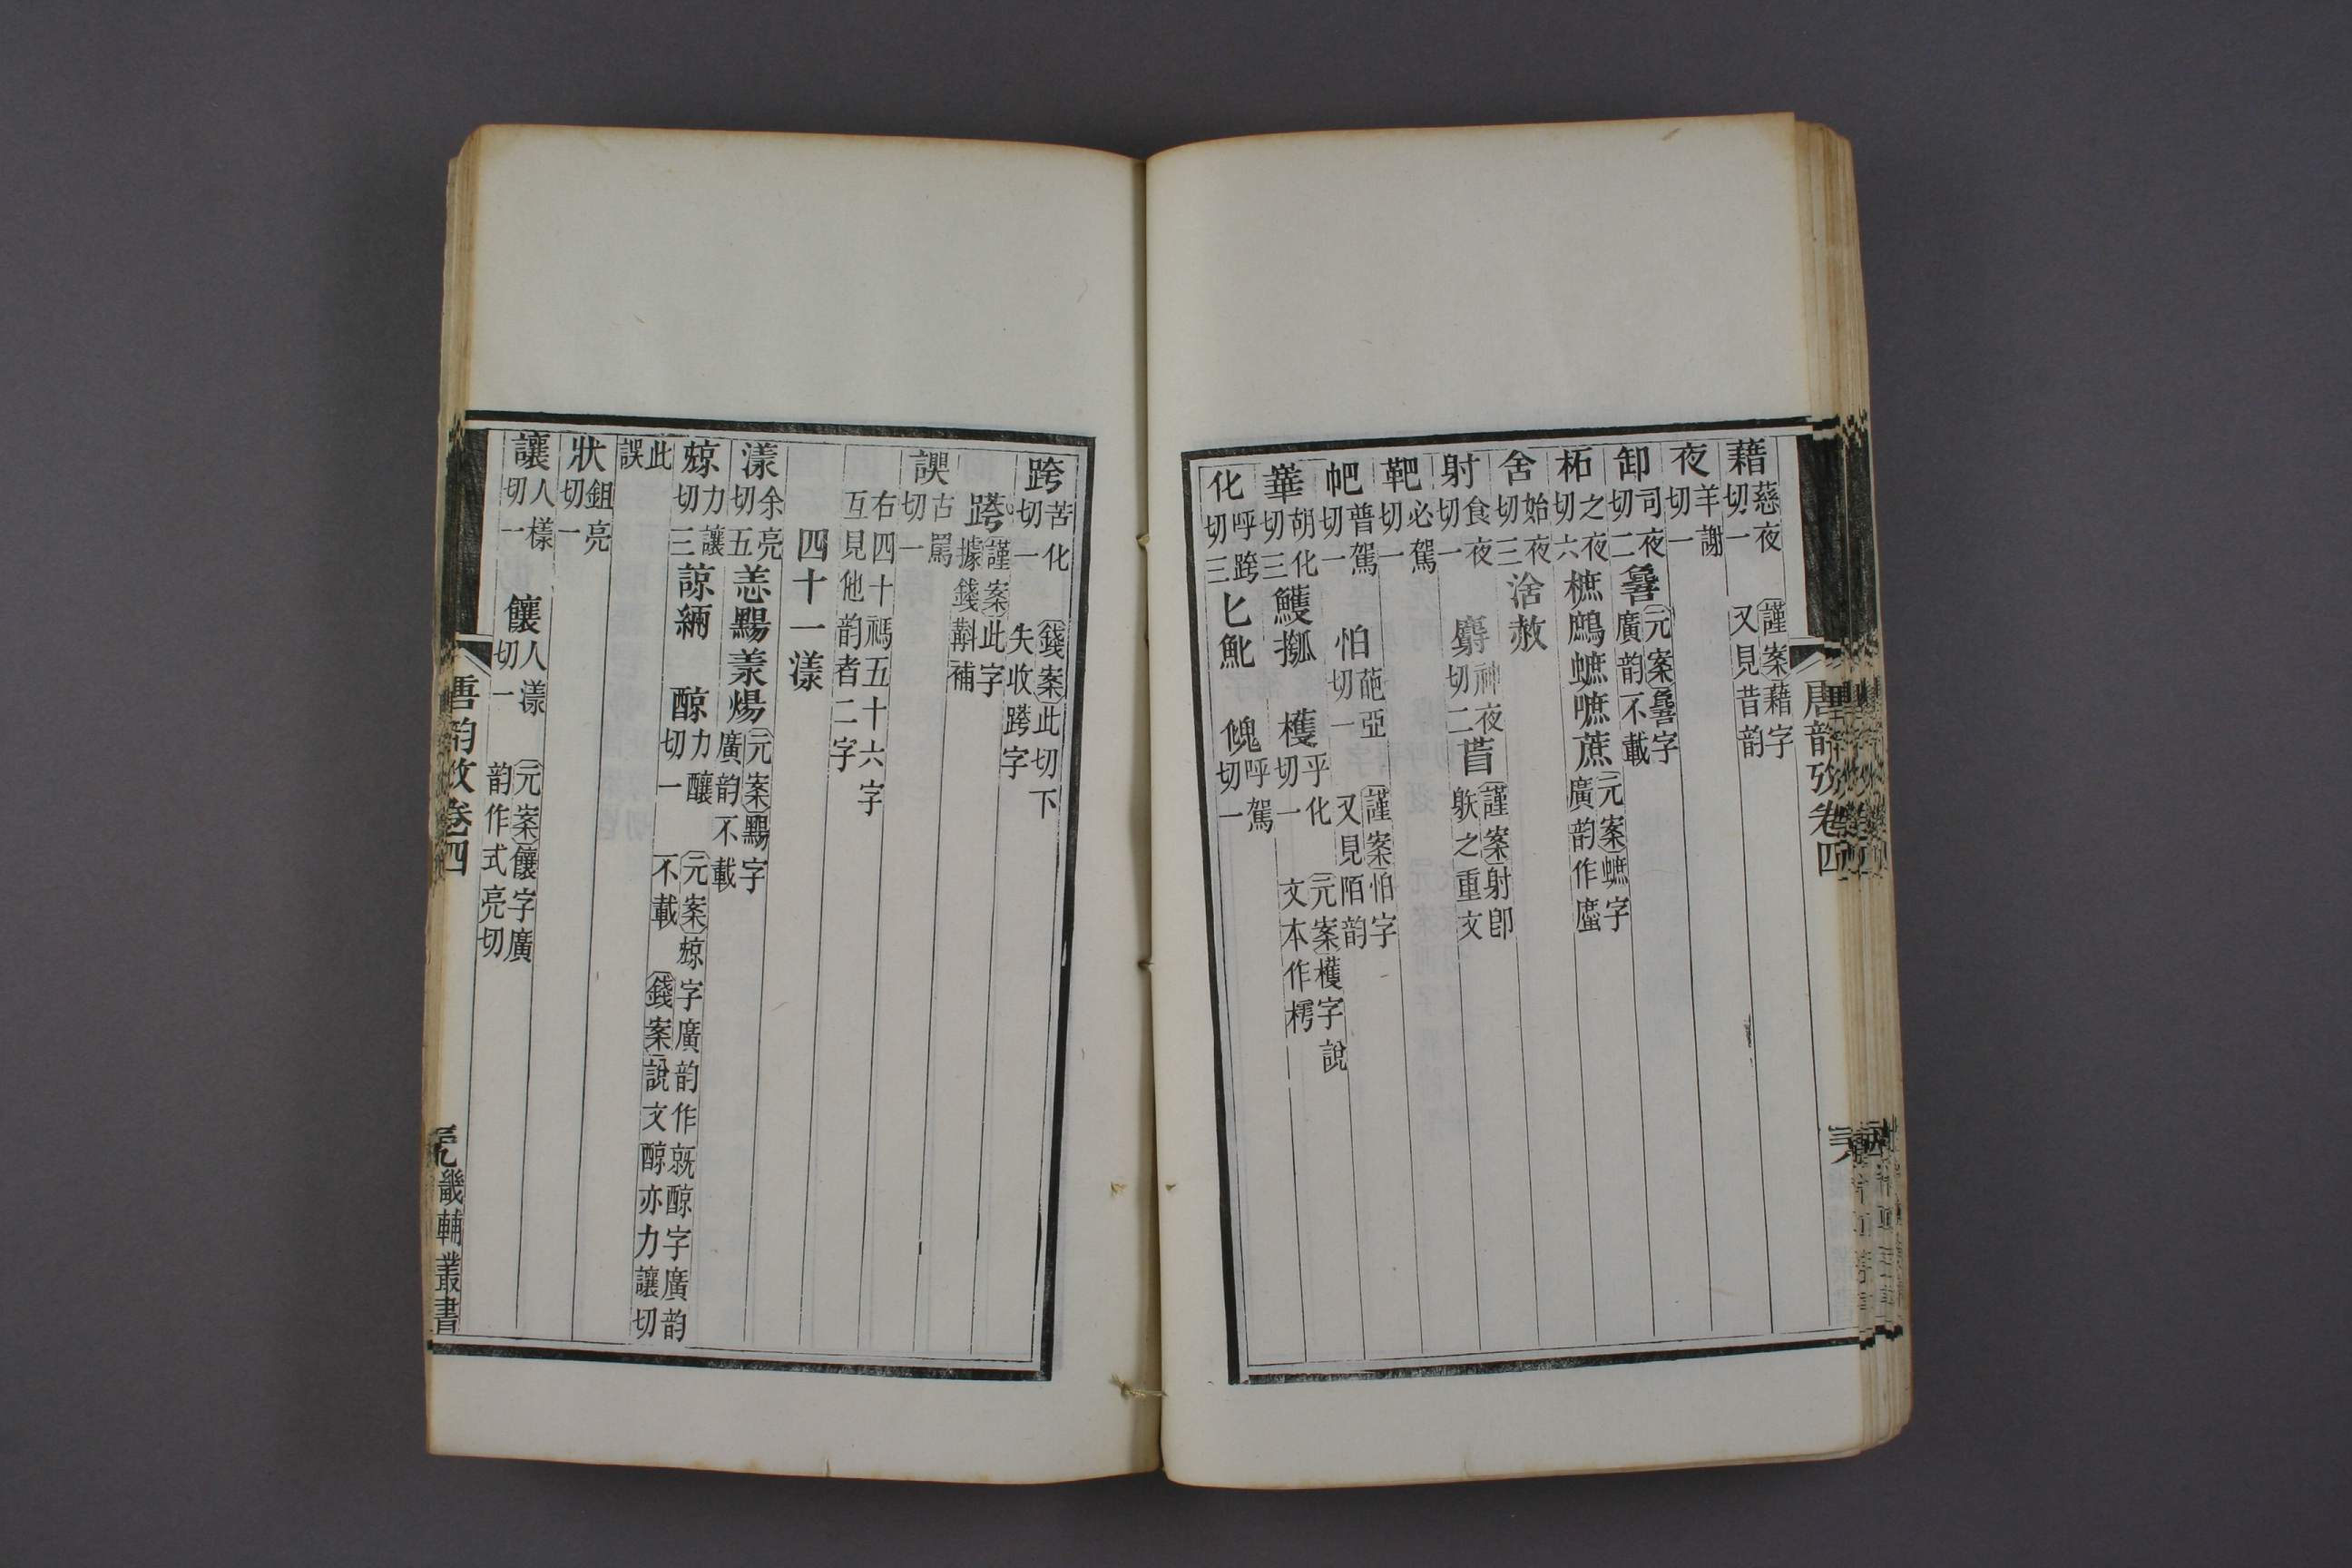 唐韵攷卷四
藉慈夜切一 謹案藉字又見昔韵
夜羊謝切一
卸司夜切二 元案字廣韵不載
柘之夜切六樜鷓蟅嗻蔗元案蟅字廣韵作䗪
舍始夜切三涻赦
射食夜切一 麝神夜切二䔑謹案射卽䠶之重文
靶必駕切一
帊普駕切一 怕葩亞切一 謹案怕字又見陌韵
華胡化切三鱯摦 檴乎化切一 元案檴字說文本作樗
化呼跨切三匕魤 傀呼駕切一
跨苦化切一 錢案此切下失收跨字
謹案此字據錢斠補
謑古罵切一
右四十禡五十六字互見他韵者二字
四十一漾
漾余亮切五恙羕煬元案字廣韵不載
䣼力讓切三諒緉 醇力釀切一 元案字廣韵作就醇字廣韵不載 錢案說文醇亦力讓切
此誤
狀鉏亮切一
讓人樣切一 饟人漾切一 元案饟字廣韵作式亮切
唐韵攷卷四
畿輔叢書